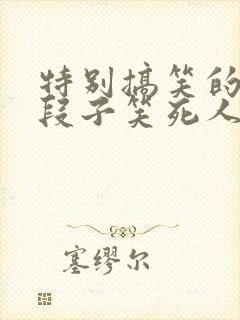 特别搞笑的
段子笑死人
塞缪尔